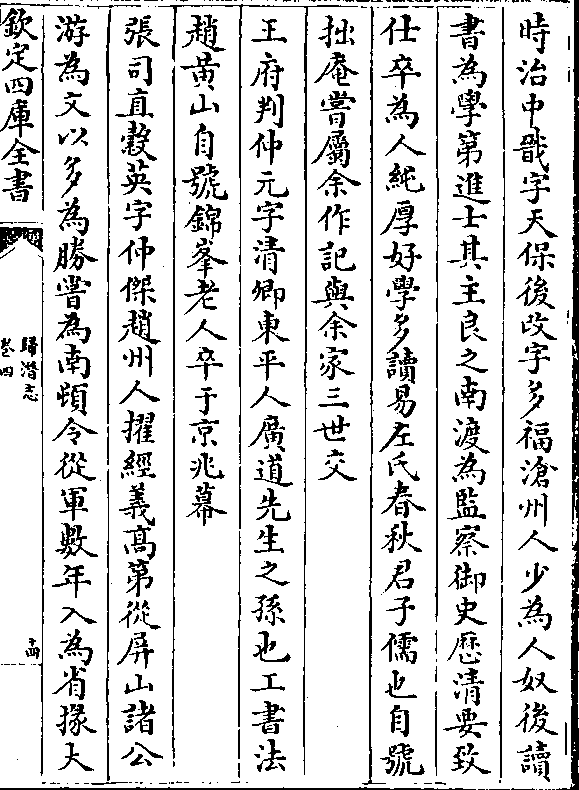 時治中戩字天保後改字多福滄州人少為人奴後讀
書為學第進士其主良之南渡為監察御史歴清要致
仕卒為人純厚好學多讀易左氏春秋君子儒也自號
拙庵嘗屬余作記與余家三世交
王府判仲元字清卿東平人廣道先生之孫也工書法
趙黃山自號錦峯老人卒于京兆幕
張司直㲄英字仲傑趙州人擢經義髙第從屏山諸公
游為文以多為勝嘗為南頓令從軍數年入為省掾大
欽定四庫全書
歸潛志
卷四
十四